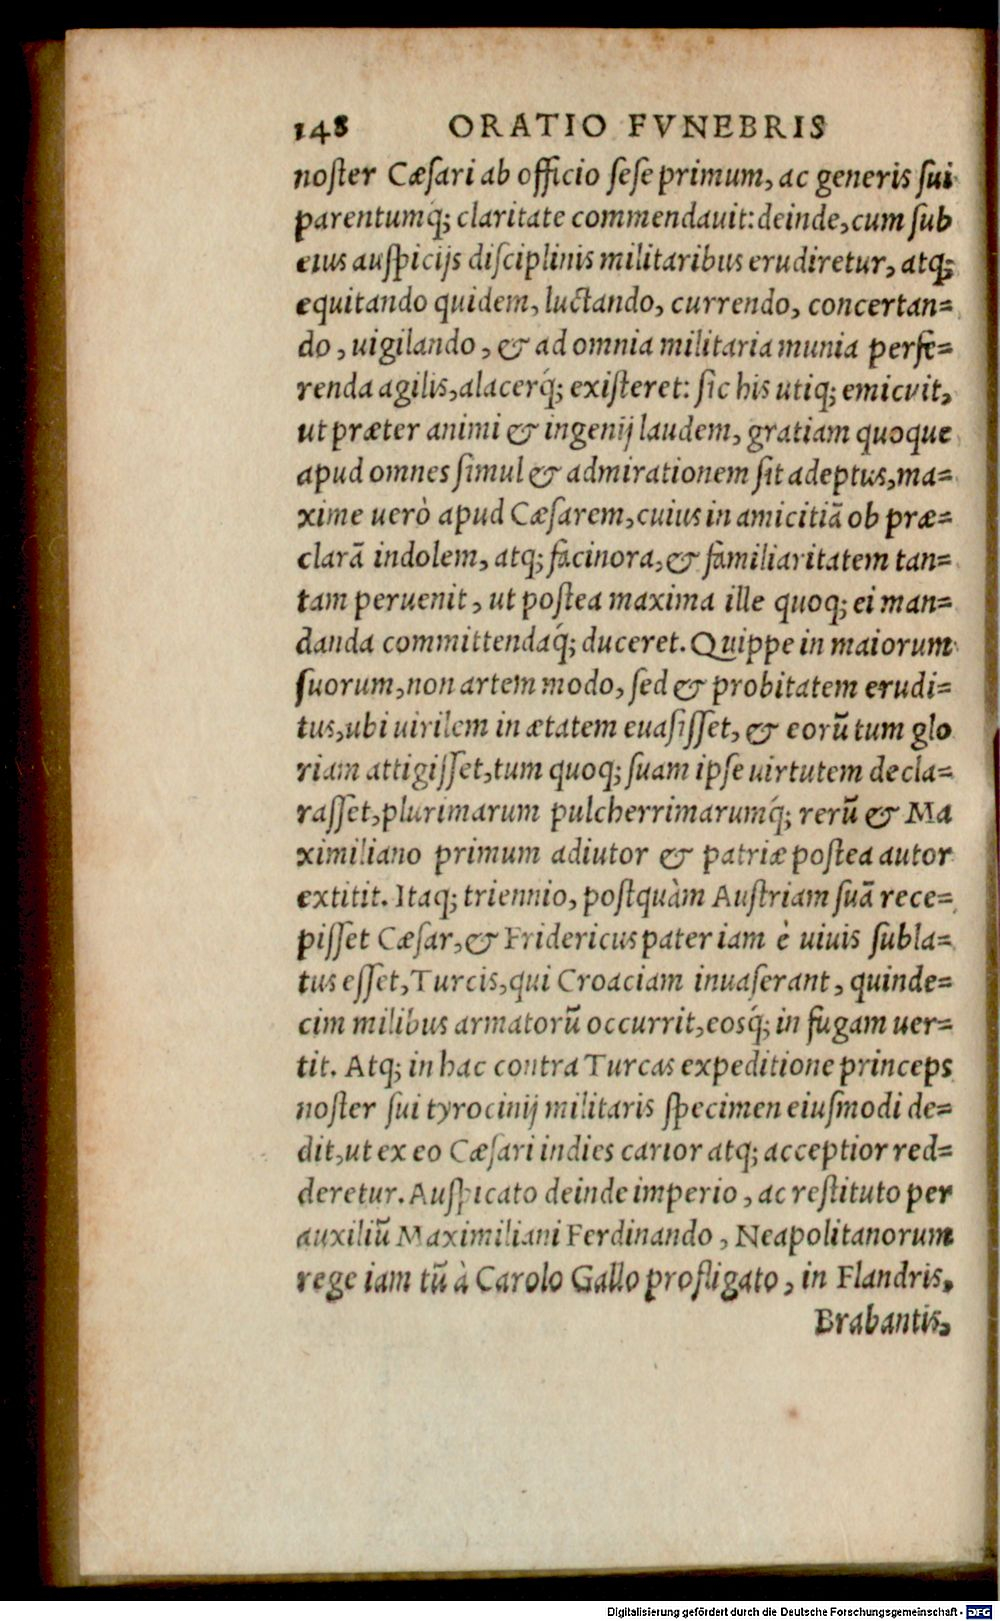 148 ORATIO FVNEBRIS
noſter Cæſari ab officio ſeſe primum, ac generis ſui
parentumq́; claritate commendauit: deinde, cum ſub
eius auſpicijs diſciplinis militaribus erudiretur, atq;
equitando quidem, luctando, currendo, concertan=
do, uigilando, & ad omnia militaria munia perfe=
renda agilis, alacerq́; exiſteret: ſic his utiq; emicuit,
ut præter animi & ingenij laudem, gratiam quoque
apud omnes ſimul & admirationem ſit adeptus, ma=
xime uerò apud Cæſarem, cuius in amicitiā ob præ=
clarā indolem, atq; facinora, & familiaritatem tan=
tam peruenit, ut poſtea maxima ille quoq; ei man=
danda committendaq́; duceret. Quippe in maiorum
ſuorum, non artem modo, ſed & probitatem erudi=
tus, ubi uirilem in ætatem euaſiſſet, & eorū tum glo
riam attigiſſet, tum quoq; ſuam ipſe uirtutem decla=
raſſet, plurimarum pulcherrimarumq́; rerū & Ma
ximiliano primum adiutor & patriæ poſtea autor
extitit. Itaq; triennio, poſtquàm Auſtriam ſuā rece=
piſſet Cæſar, & Fridericus pater iam è uiuis ſubla=
tus eſſet, Turcis, qui Croaciam inuaſerant, quinde=
cim milibus armatorū occurrit, eosq́; in fugam uer=
tit. Atq; in hac contra Turcas expeditione princeps
noſter ſui tyrocinij militaris ſpecimen eiuſmodi de=
dit, ut ex eo Cæſari indies carior atq; acceptior red=
deretur. Auſpicato deinde imperio, ac reſtituto per
auxiliū Maximiliani Ferdinando, Neapolitanorum
rege iam tū à Carolo Gallo profligato, in Flandris,
Brabantis,
Digitalisierung gefördert durch die Deutsche Forschungsgemeinschaft - DFG